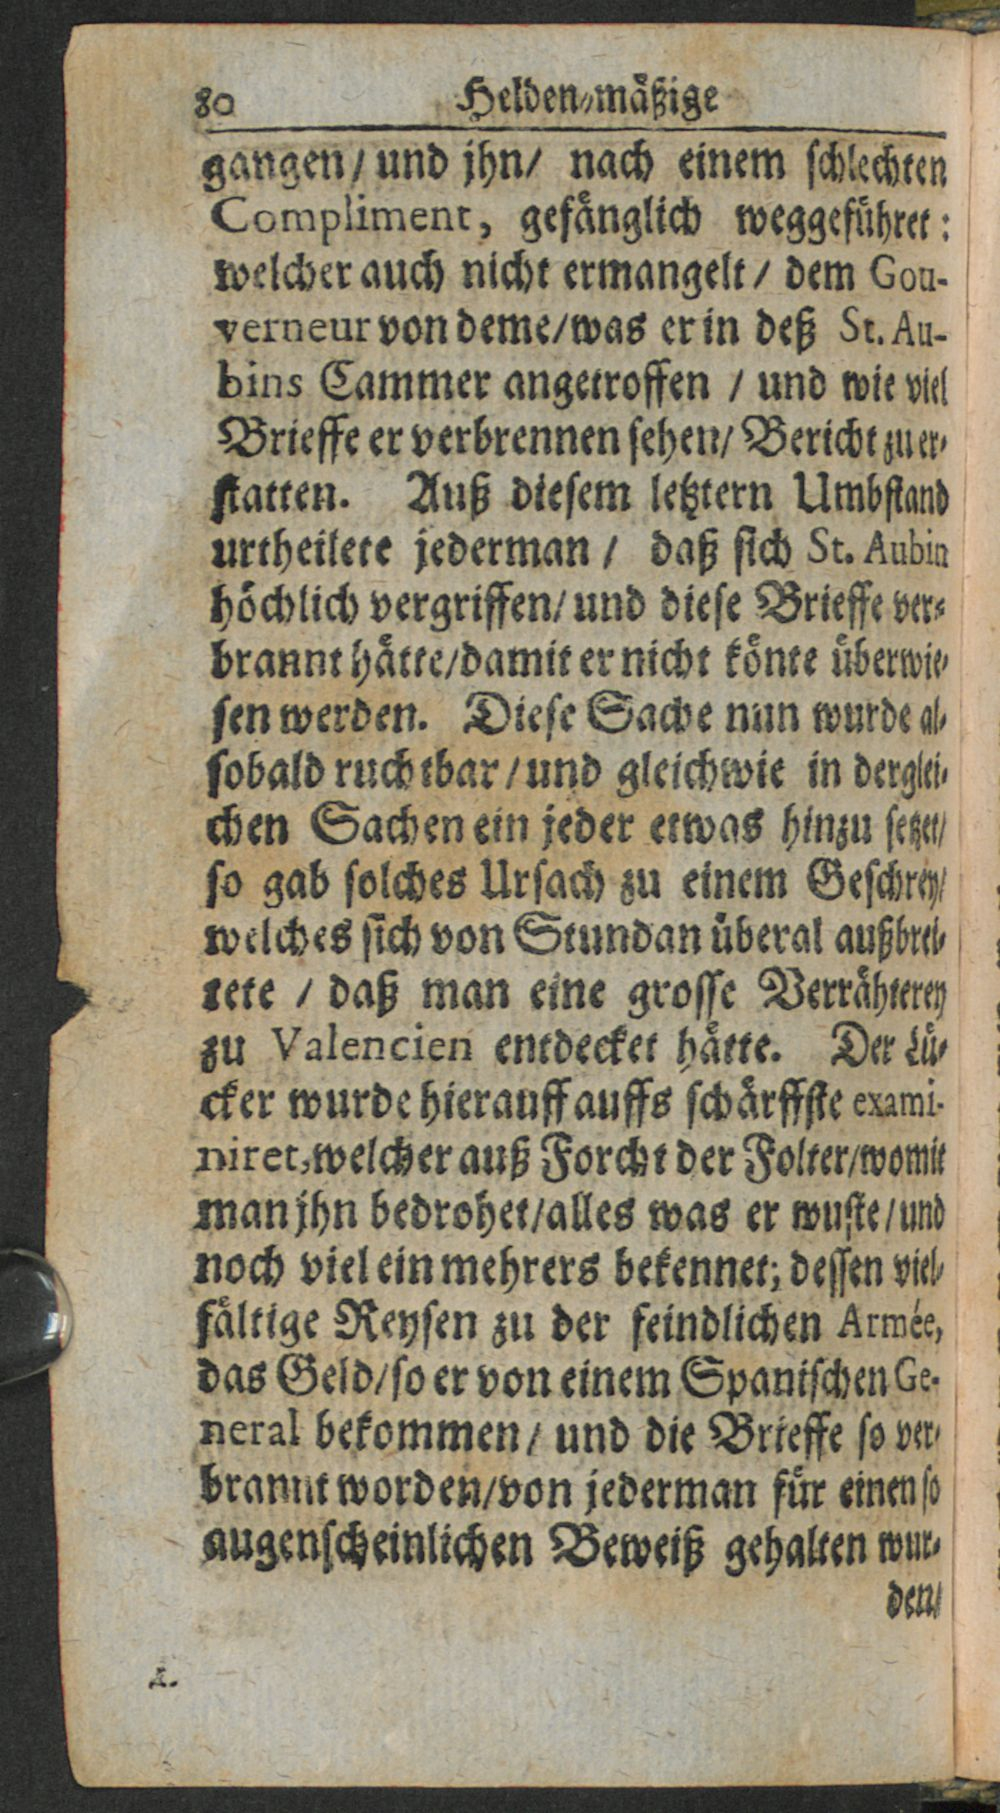 80 Helden-mäßige
gangen / und jhn / nach einem schlechten
Compliment, gefänglich weggeführet:
welcher auch nicht ermangelt / dem Gou-
verneur von deme / was er in deß St. Au-
bins Cammer angetroffen / und wie viel
Brieffe er verbrennen sehen / Bericht zu er-
statten. Auß diesem letztern Umbstand
urtheilete jederman / daß sich St. Aubin
höchlich vergriffen / und diese Brieffe ver-
brannt hätte / damit er nicht könte überwie-
sen werden. Diese Sache nun wurde al-
sobald ruchtbar / und gleichwie in derglei-
chen Sachen ein jeder etwas hinzu setzet /
so gab solches Ursach zu einem Geschrey /
welches sich von Stundan überal außbrei-
tete / daß man eine grosse Verrähterey
zu Valencien entdecket hätte. Der Lü-
cker wurde hierauff auffs schärffste exami-
niret, welcher auß Forcht der Folter / womit
man jhn bedrohet / alles was er wuste / und
noch viel ein mehrers bekennet; dessen viel-
fältige Reysen zu der feindlichen Armée,
das Geld / so er von einem Spanischen Ge-
neral bekommen / und die Brieffe so ver-
brannt worden / von jederman für einen so
augenscheinlichen Beweiß gehalten wur-
den /